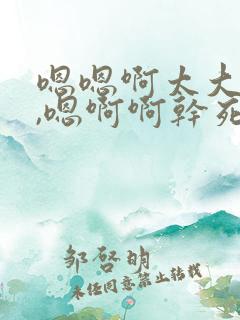 嗯嗯啊太大
,嗯啊啊幹死
邹啓明
未经同意禁止转载